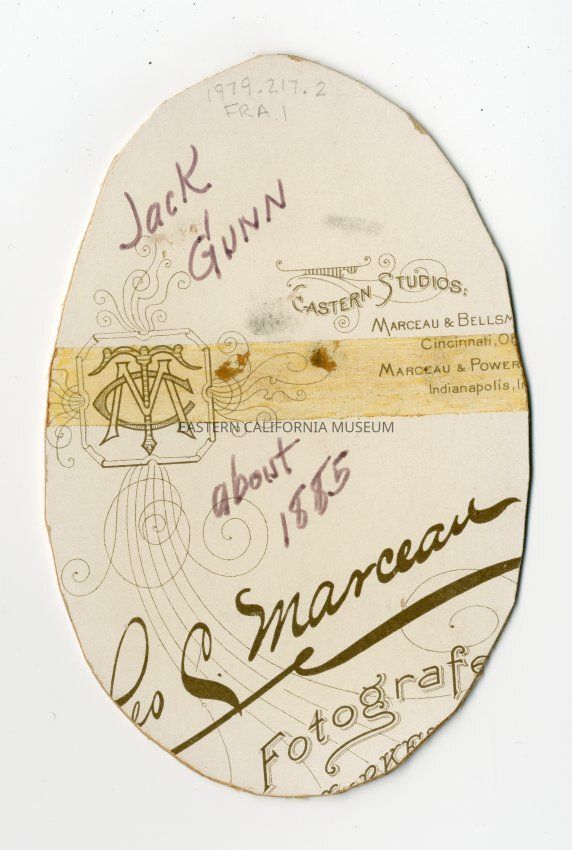 1979.217.2
FRA.1
Jack
GUNN
EASTERN STUDIOS:
MARCEAU & BELLSM
Cincinnati, O
MARCEAU & POWER
Indianapolis, I
EASTERN CALIFORNIA MUSEUM
about
1885
eo L. Marceau
Fotografe